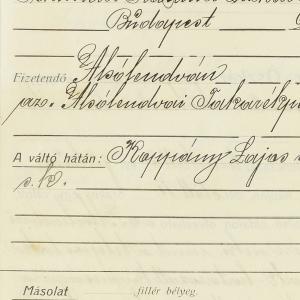 Budapest
Fizetendő Alsólendván
az. Alsólendvai Takarékp
A váltó hátán: Koppány Lajos
s. k.
Másolat fillér bélyeg.